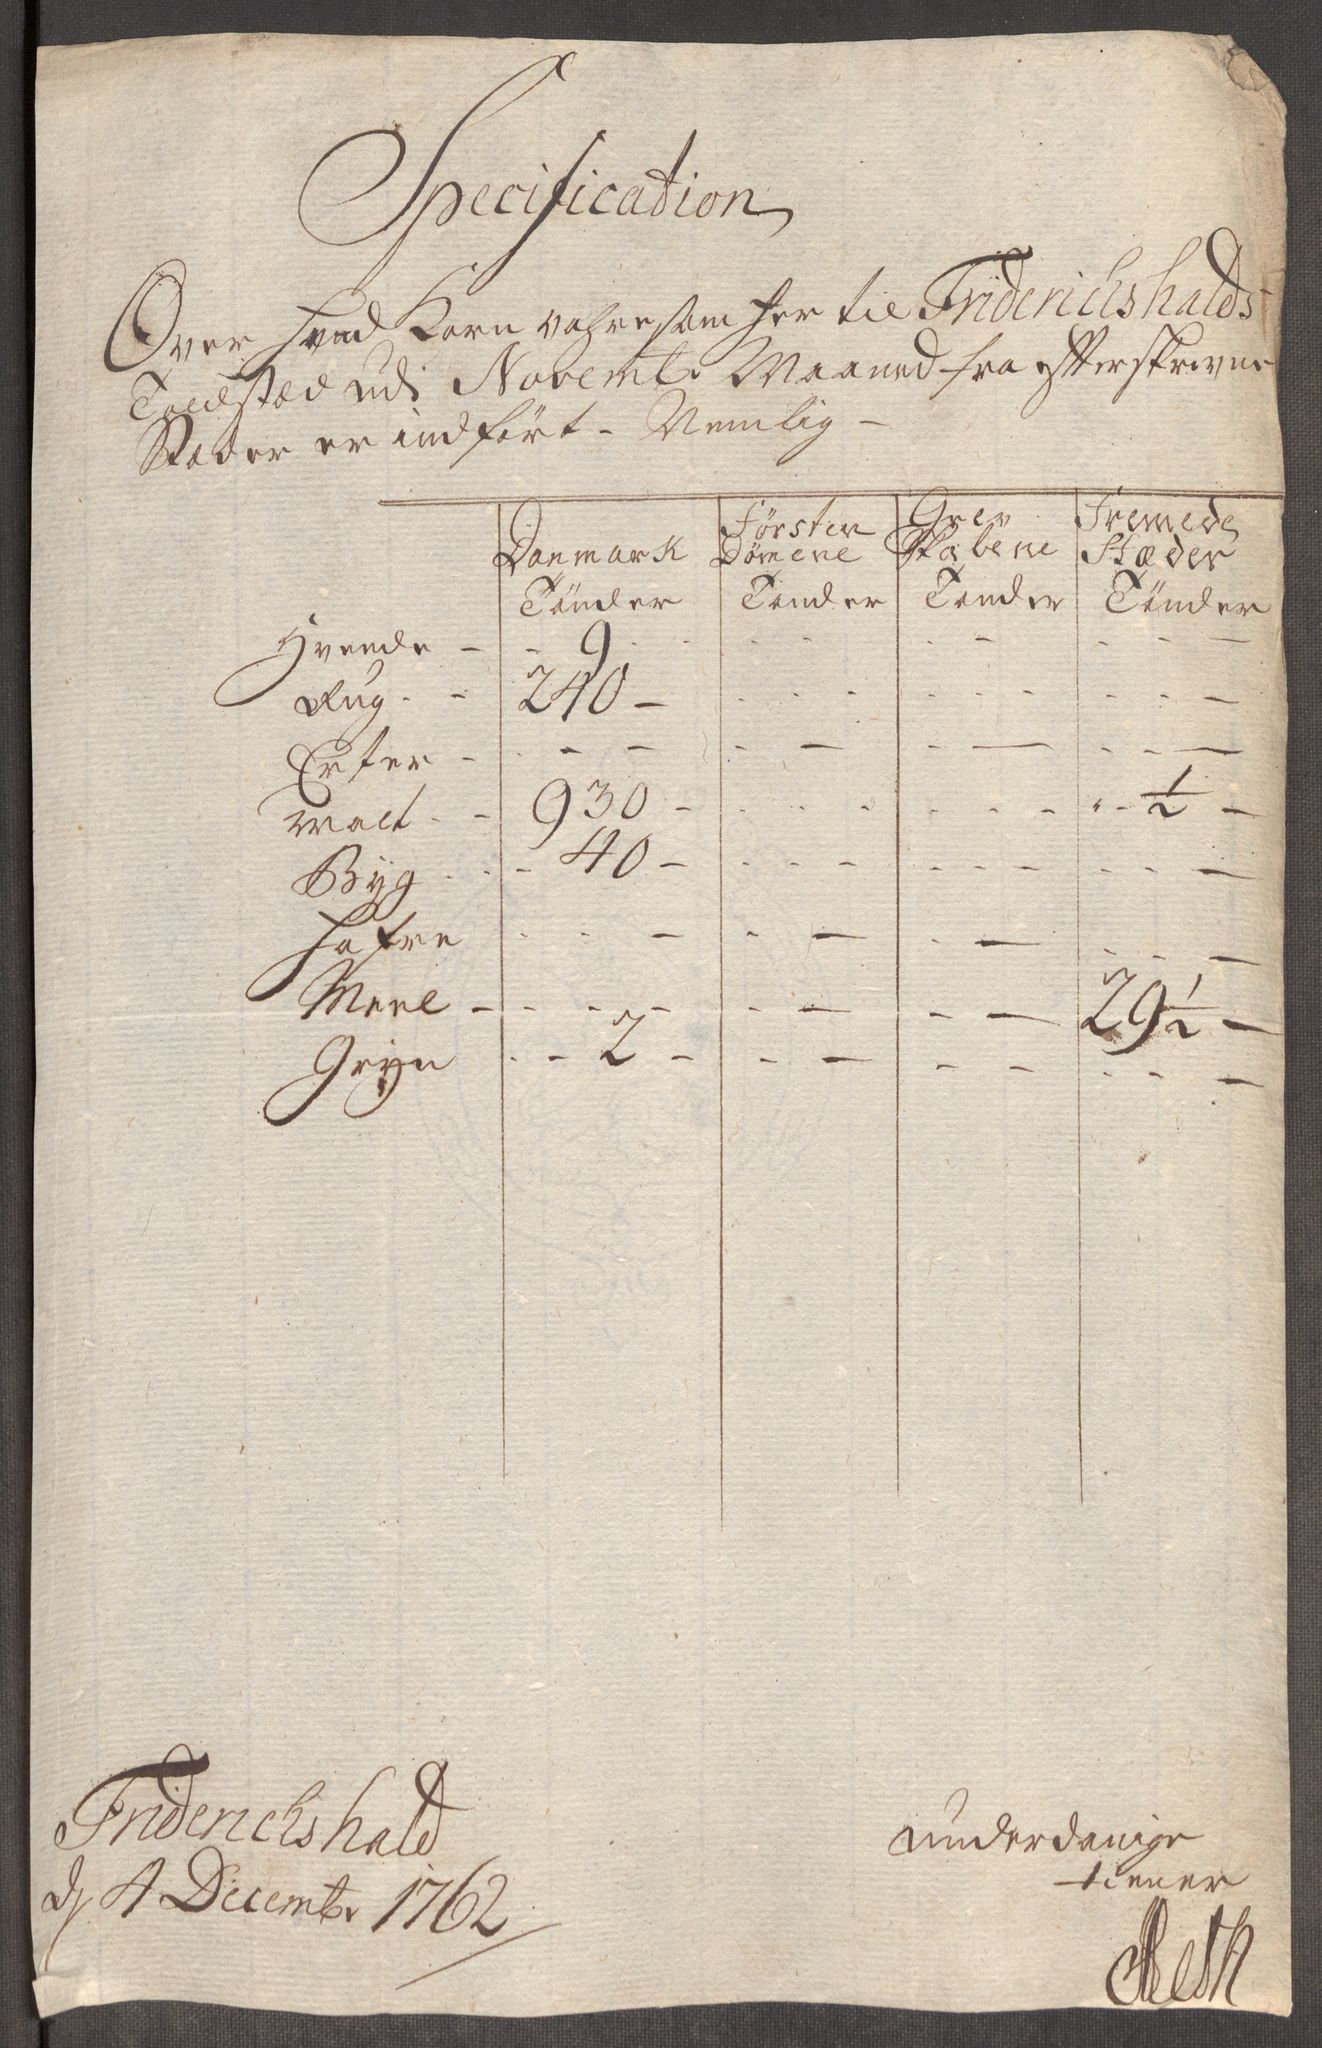 Specification
Over hvad Korn vahre som her til Friderichshalds
Toldsted udi Novembr Maaned fra efterskrevne
Stæder er indført - Nemlig -
Danmark Tønder | Førsten Dømene Tønder | Grev Skabene Tønder | Fremede Stæder Tønder
Hvede - - 9 - - - - - - - -
Rug - - 240 - - - - - - - - - -
Erter - - - - - - - - - - -
Malt - - 930 - - - - - - - - - ½ -
Byg - - - 40 - - - - - - - - - -
Hafre - - - - - - - - - -
Meel - - - - - - - - - 29½ -
Gryn - - 2 - - - - - - - -
Friderichshald
dj 4 Decembr 1762
underdanige
tiener